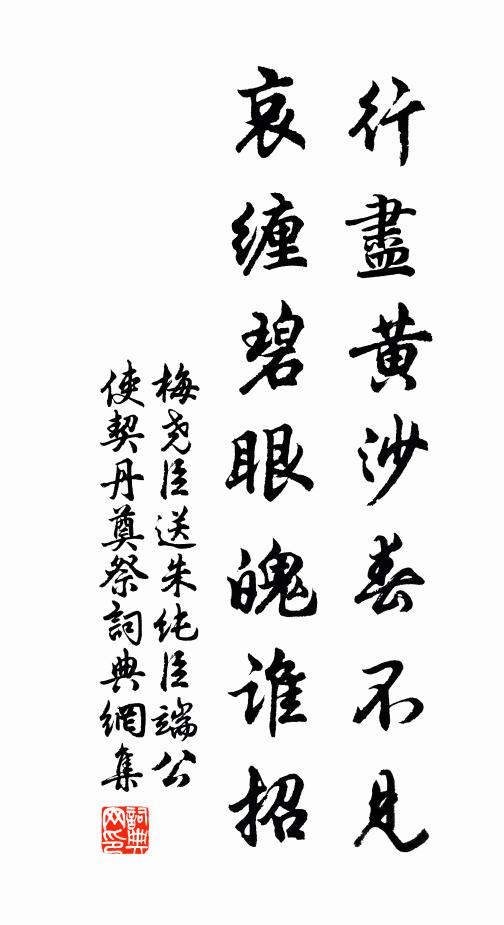 行盡黄沙春不見
哀纏碧眼魄誰招
梅堯臣送朱純臣端公
使契丹奠祭詞典網集
詞典
网印